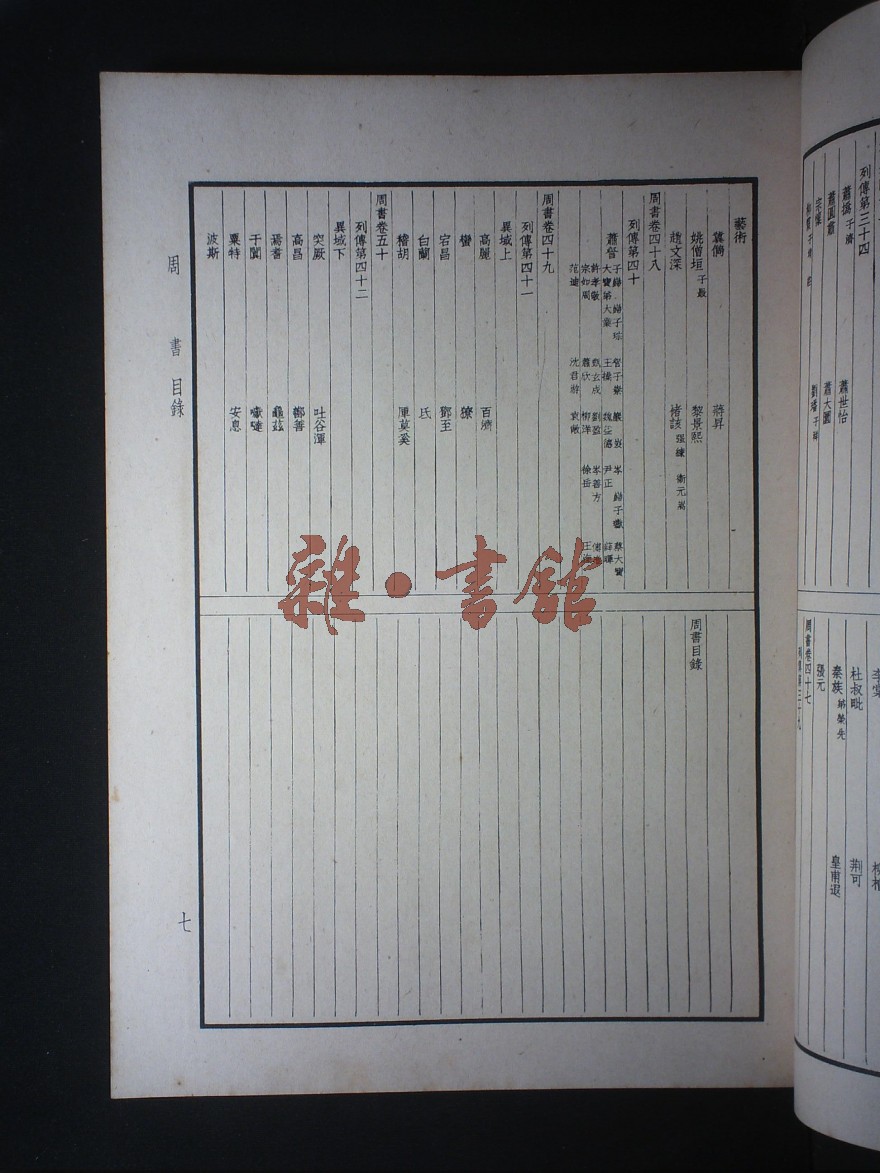 列傳第三十四
蕭撝 子濟 蕭世怡
蕭圓肅 蕭大圜
宗懍 劉璠 子祥
杜叔毗 荊可
秦族 弟榮先 皇甫遐
張元
周書卷四十七
列傳第三十九
藝術
冀儁 蔣昇
姚僧垣 子最 黎景熙
趙文深 褚該 強練 衛元嵩
周書卷四十八
列傳第四十
蕭詧 子巋 巋子琮 詧子嶚 巖 岌 岑 巋子瓛 蔡大寶
大寶弟大業 王操 魏益德 尹正 薛暉
許孝敬 甄玄成 劉盈 岑善方
宗如周 蕭欣 柳洋 徐岳
范迪 沈君游 袁敞
周書卷四十九
列傳第四十一
異域上
高麗 百濟
蠻 獠
宕昌 鄧至
白蘭 氐
稽胡 庫莫奚
周書卷五十
列傳第四十二
異域下
突厥 吐谷渾
高昌 鄯善
焉耆 龜茲
于闐 囐噠
粟特 安息
波斯
周書目錄
周書 目錄
七
雜·書館